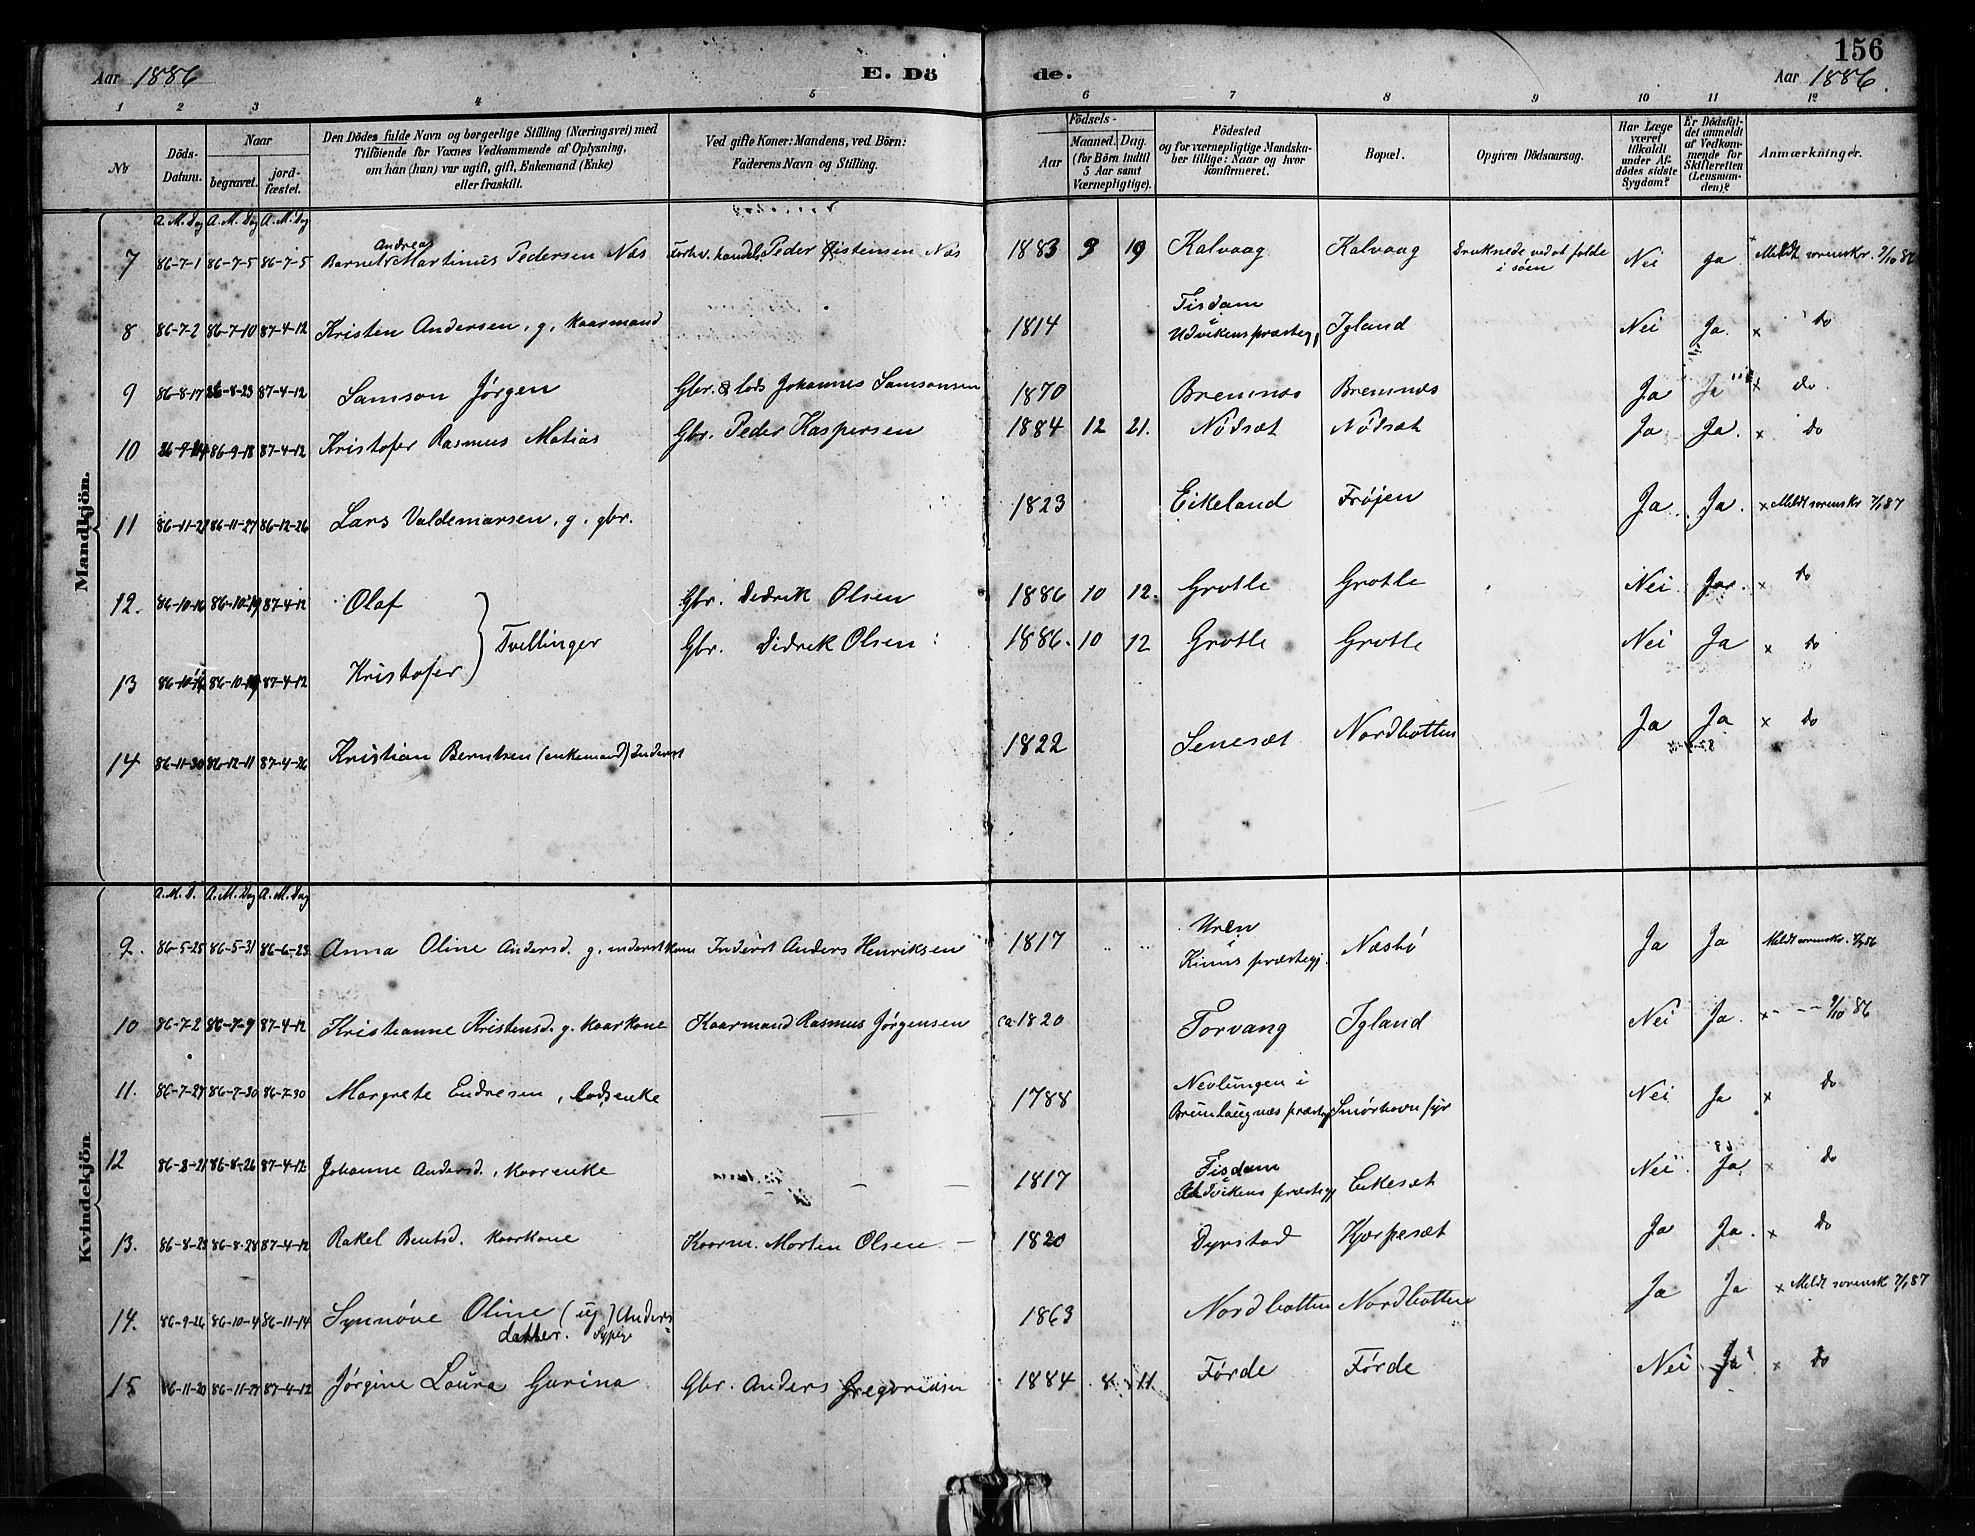 156
Aar 1886 E. Dö de. Aar 1886.
1 2 3 4 5 6 7 8 9 10 11 12
No Döds-Datum. Naar begravet. jordfæstet. Den Dödes fulde Navn og borgerlige Stilling (Næringsvei) med Tilföiende for Voxnes Vedkommende af Oplysning, om han (hun) var ugift, gift, Enkemand (Enke) eller fraskilt. Ved gifte Koner: Mandens, ved Börn: Faderens Navn og Stilling. Aar Födsels- Maaned. Dag. (for Börn indtil 5 Aar samt Værnepligtige). Födested og for værnepligtige Mandskaber tillige: Naar og hvor konfirmeret. Bopæl. Opgiven Dödsaarsag. Har Læge været tilkaldt under Afdödes sidste Sygdom? Er Dödsfaldet anmeldt af Vedkommende for Skifteretten (Lensmanden)? Anmærkninger.
Mandkjön.
A. M. Dag A. M. Dag A. M. Dag
Andreas
7 86-7-1 86-7-5 86-7-5 Barnet Martinus Pedersen Næs forhv. handels. Peder Næs 1883 9 19 Kalvaag Kalvaag Druknede ved at falde Nei Ja Meldt sorenskr. 9/10 86
i søen
Tisdam
8 86-7-2 86-7-10 87-4-12 Kristen Andersen, g, kaarmand 1814 Udvikens præstegj, Igland Nei Ja. x Do
9 86-8-17 86-8-23 87-4-12 Samson Jørgen Gbr. & lods Johannes Samsonsen 1870 Bremnæs Bremnæs Ja Ja x Do.
10 86-9-18 87-4-12 Kristofer Rasmus Matias Gbr. Peder Kaspersen 1884 12 21. Nødsæt Nødsæt Ja Ja. x Do
11 86-11-21 86-11-27 86-12-26 Lars Valdemarsen, g, gbr. 1823 Eikeland Frøjen Ja. Ja. x Meldt sorenskr 7/1 87
12. 86-10-16 86-10-19 87-4-12 Olaf Gbr. Didrik Olsen 1886 10 12. Grotle Grotle Nei Ja. x Do
Tvillinger
13 86-10-19 87-4-12 Kristofer Gbr. Didrik Olsen 1886. 10 12 Grotle Grotle Nei Ja x Do
14 86-11-30 86-12-11 87-4-26 Kristian Berntsen (enkemand) Inderst 1822 Senesæt Nordbotten Ja Ja x Do
Kvindekjön.
A. M. D. A. M. Dag A. M. Dag
Uren
9. 86-5-25 86-5-31 86-6-23 Anna Oline Andersd. g. inderstkone Inderst Anders Henriksen 1817 Kinns præstegj. Næsbø Ja Ja Meldt sorenskr.
10 86-7-2 86-7-9 87-4-12 Kristianne Kristensd. g. kaarkone Kaarmand Rasmus Jørgensen ca 1820 Torvang Igland Nei Ja. x - - - 9/10 86
Nevlungen i
11. 86-7-27 86-7-30 86-7-30 Margrete Endresen, Lodsenke 1788 præstegj Smørhavn fyr Nei Ja x Do
Tisdam
12 86-8-21 86-8-26 87-4-12 Johanne Andersd., kaarenke - - 1817 Udvikens præstegj Eikesæt Nei Ja x Do
13. 86-8-23 86-8-28 87-4-12 Rakel Bentsd. kaarkone Kaarm. Morten Olsen - 1820 Dyrstad Hjørpesæt Ja Ja. x Do
14. 86-9-26 86-10-4 86-11-14 Synnøve Oline (ug) Anders 1863 Nordbotten Nordbotten Ja Ja x Meldt sorensk 7/1 87
datter. Sypige
15 86-11-20 86-11-27 87-4-12 Jørgine Laura Gurina Gbr. Anders Gregoriusen 1884 8 11 Førde Førde Nei Ja x Do